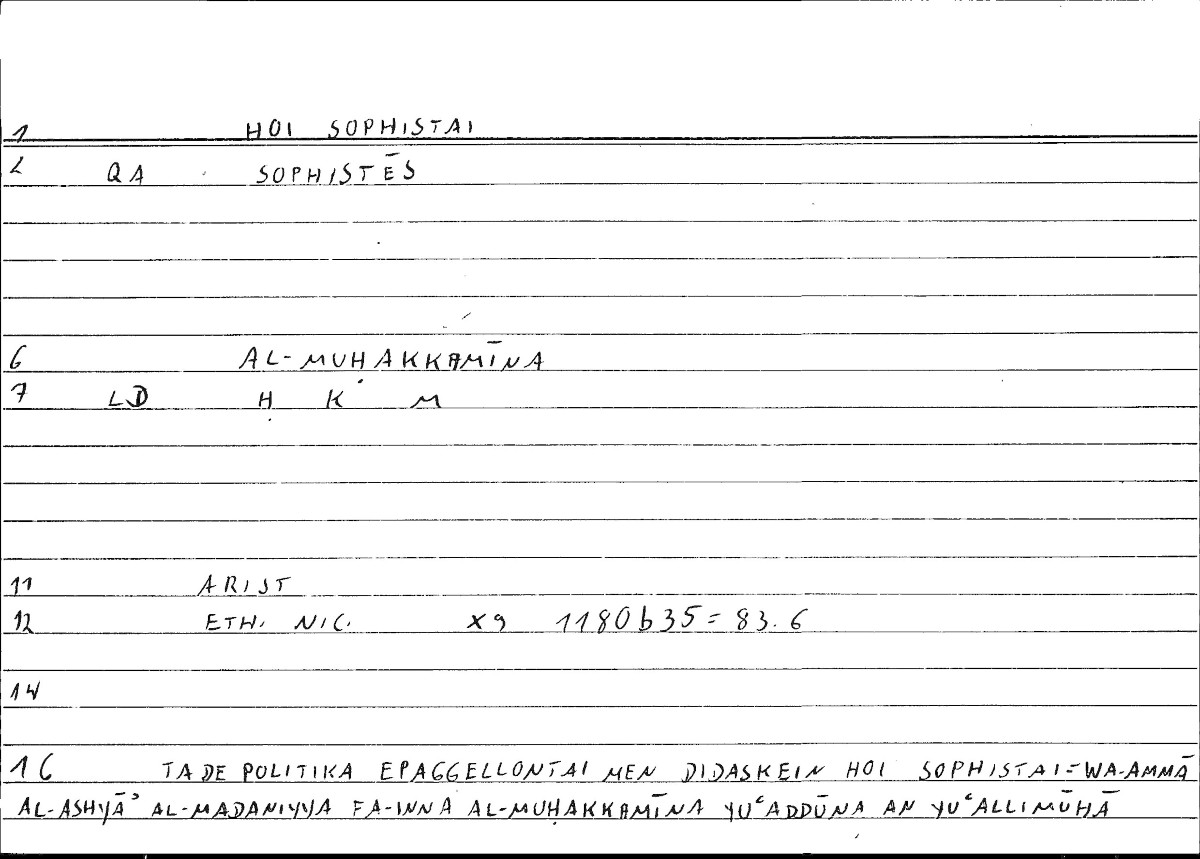 1 HOI SOPHISTAI
2 QA SOPHISTĒS
6 AL-MUHAKKAMĪNA
7 LD Ḥ K M
11 ARIST
12 ETH. NIC. X9 1180b35=83.6
14
16 TA DE POLITIKA EPAGGELLONTAI MEN DIDASKEIN HOI SOPHISTAI=WA-AMMĀ
AL-ASHYĀʾ AL-MADANIYYA FA-INNA AL-MUḤAKKAMĪNA YUʿADDŪNA AN YUʿALLIMŪHĀ